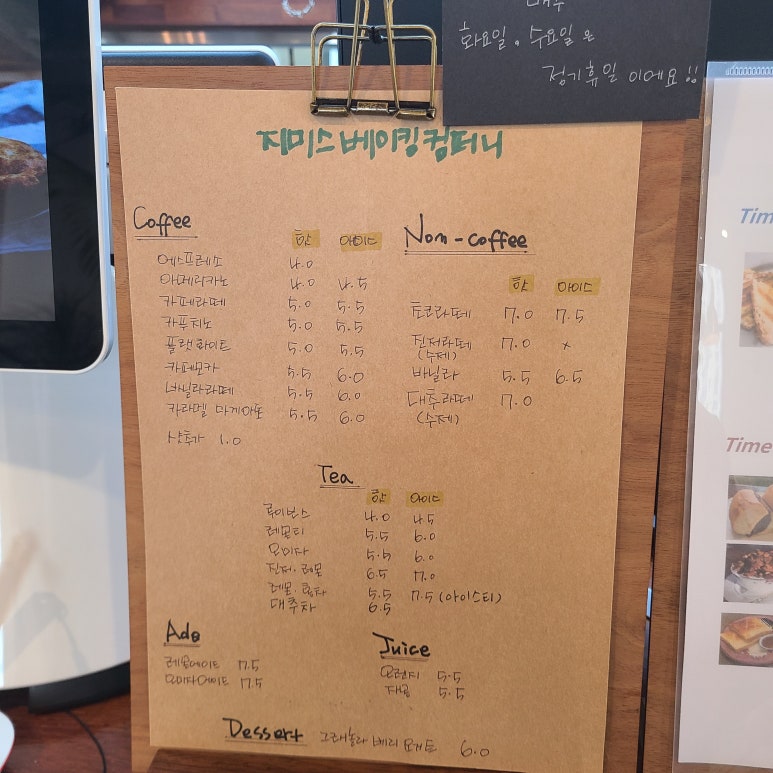 매주
화요일, 수요일은
정기휴일 이에요!!
지미스베이킹컴퍼니
Coffee
핫 아이스
에스프레소 4.0
아메리카노 4.0 4.5
카페라떼 5.0 5.5
카푸치노 5.0 5.5
플랫화이트 5.0 5.5
카페모카 5.5 6.0
바닐라라떼 5.5 6.0
카라멜 마끼아또 5.5 6.0
샷추가 1.0
Non-coffee
핫 아이스
초코라떼 7.0 7.5
진저라떼 7.0 x
(수제)
바닐라 5.5 6.5
대추라떼 7.0
(수제)
Tea
핫 아이스
루이보스 4.0 4.5
레몬티 5.5 6.0
오미자 5.5 6.0
진저.레몬 6.5 7.0
레몬.홍차 5.5 7.5 (아이스티)
대추차 6.5
Ade
레몬에이드 7.5
오미자에이드 7.5
Juice
오렌지 5.5
자몽 5.5
Dessert 그래놀라 베리 요거트 6.0
Time
Time